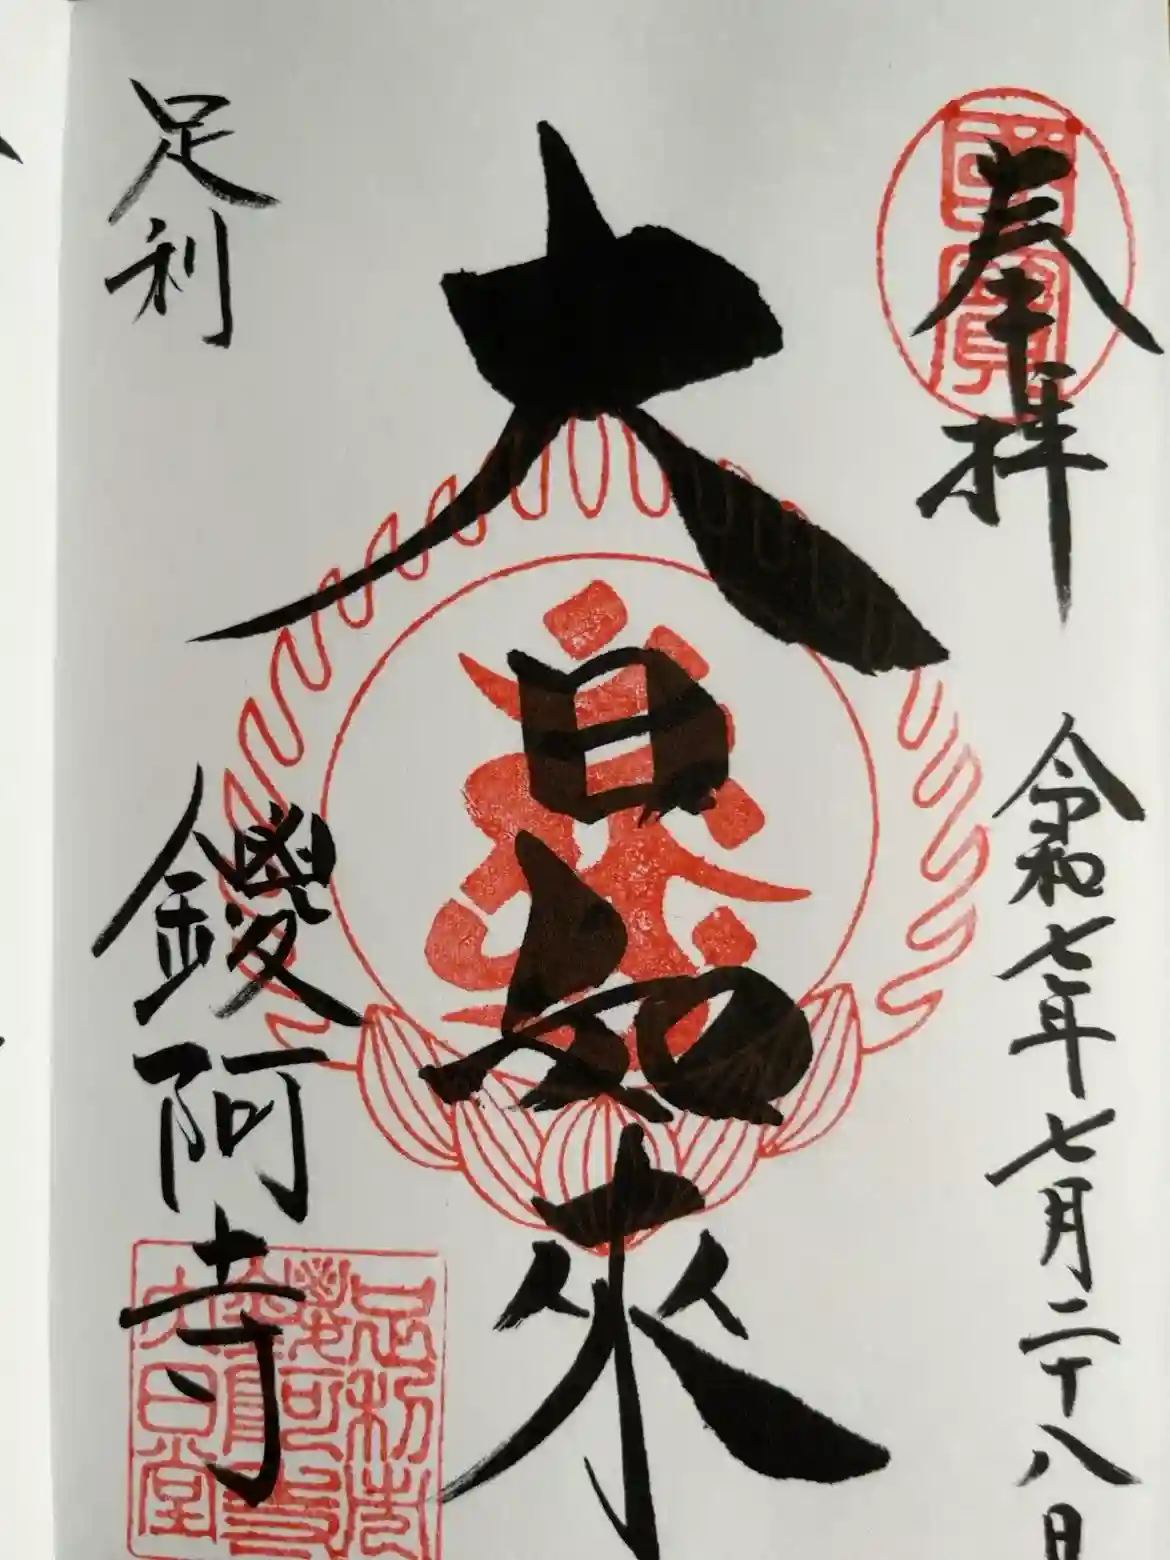 奉拝
國寶
令和七年七月二十八日
大日如来
足利
鑁阿寺
足利市
鑁阿寺
大日堂